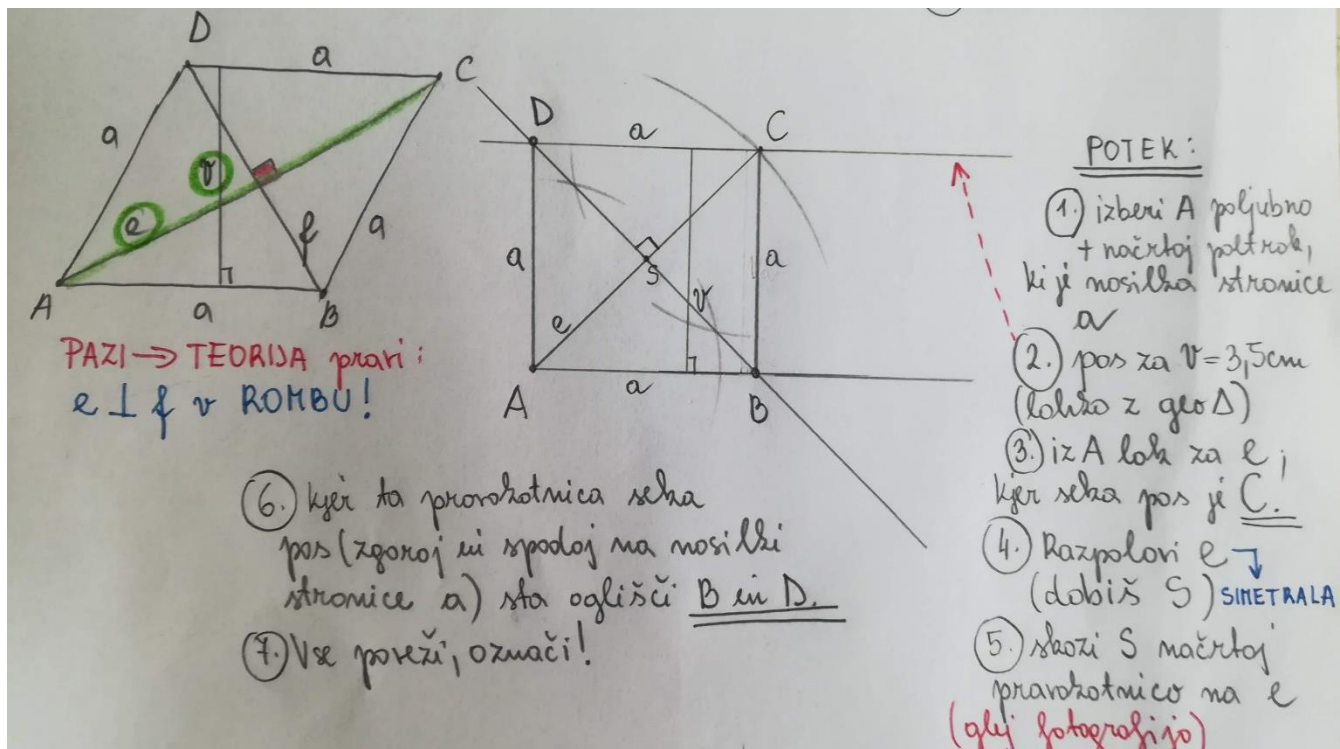 D
a
C
a
v
e
f
a
A
a
B
PAZI → TEORIJA pravi:
e ⊥ f v ROMBU!
D
a
C
a
S
a
e
v
A
a
B
POTEK:
1. izberi A poljubno
+ načrtaj poltrak,
ki je nosilka stranice
a
2. pas za v = 3,5cm
(lahko z geo Δ)
3. iz A lok za e,
kjer seka pas je C.
4. Razpolovi e
(dobiš S) SIMETRALA
5. skozi S načrtaj
pravokotnico na e
(glej fotografijo)
6. kjer ta pravokotnica seka
pas (zgoraj in spodaj na nosilki
stranice a) sta oglišči B in D.
7. Vse poveži, označi!